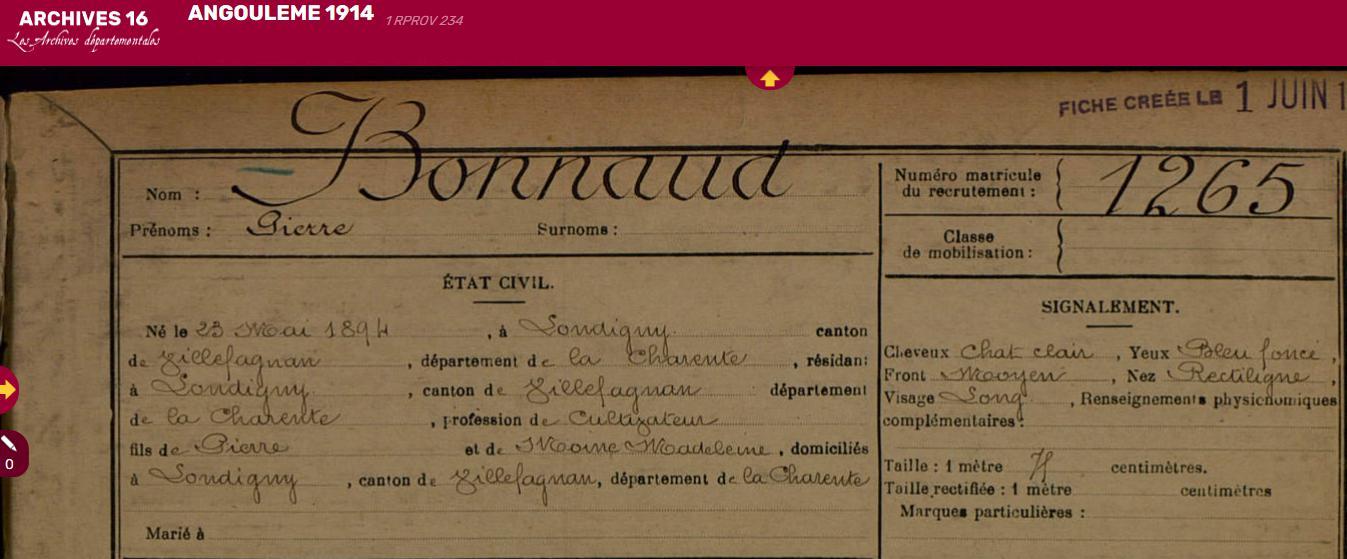 ARCHIVES 16
Les Archives départementales
ANGOULEME 1914 1 RPROV 234
FICHE CRÉÉE LE 1 JUIN 1
Nom : Bonnaud
Prénoms : Pierre Surnoms :
Numéro matricule du recrutement : 1265
Classe de mobilisation :
ÉTAT CIVIL.
Né le 23 Mai 1894, à Londigny canton
de Villefagnan, département de la Charente, résidant
à Londigny, canton de Villefagnan département
de la Charente, profession de Cultivateur
fils de Pierre et de Moine Madeleine, domiciliés
à Londigny, canton de Villefagnan, département de la Charente
Marié à
SIGNALEMENT.
Cheveux Chat clair, Yeux Bleu foncé,
Front Moyen, Nez Rectiligne,
Visage Long, Renseignements physionomiques
complémentaires :
Taille : 1 mètre centimètres.
Taille rectifiée : 1 mètre centimètres
Marques particulières :
0